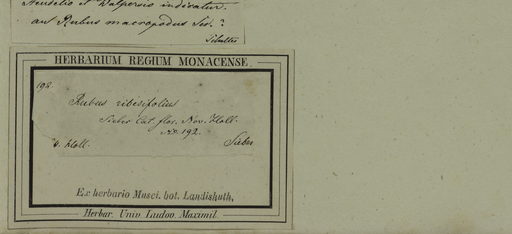 Steudelio et Walpersio indicatur.
aut Rubus macropodus Ser.?
Schultes
HERBARIUM REGIUM MONACENSE.
192.
Rubus ribesifolius
Sieber Cat. flor. Nov. Holl.
No. 192.
N. Holl. Sieber
Ex herbario Musei. bot. Landishuth,
Herbar. Univ. Ludov. Maximil.